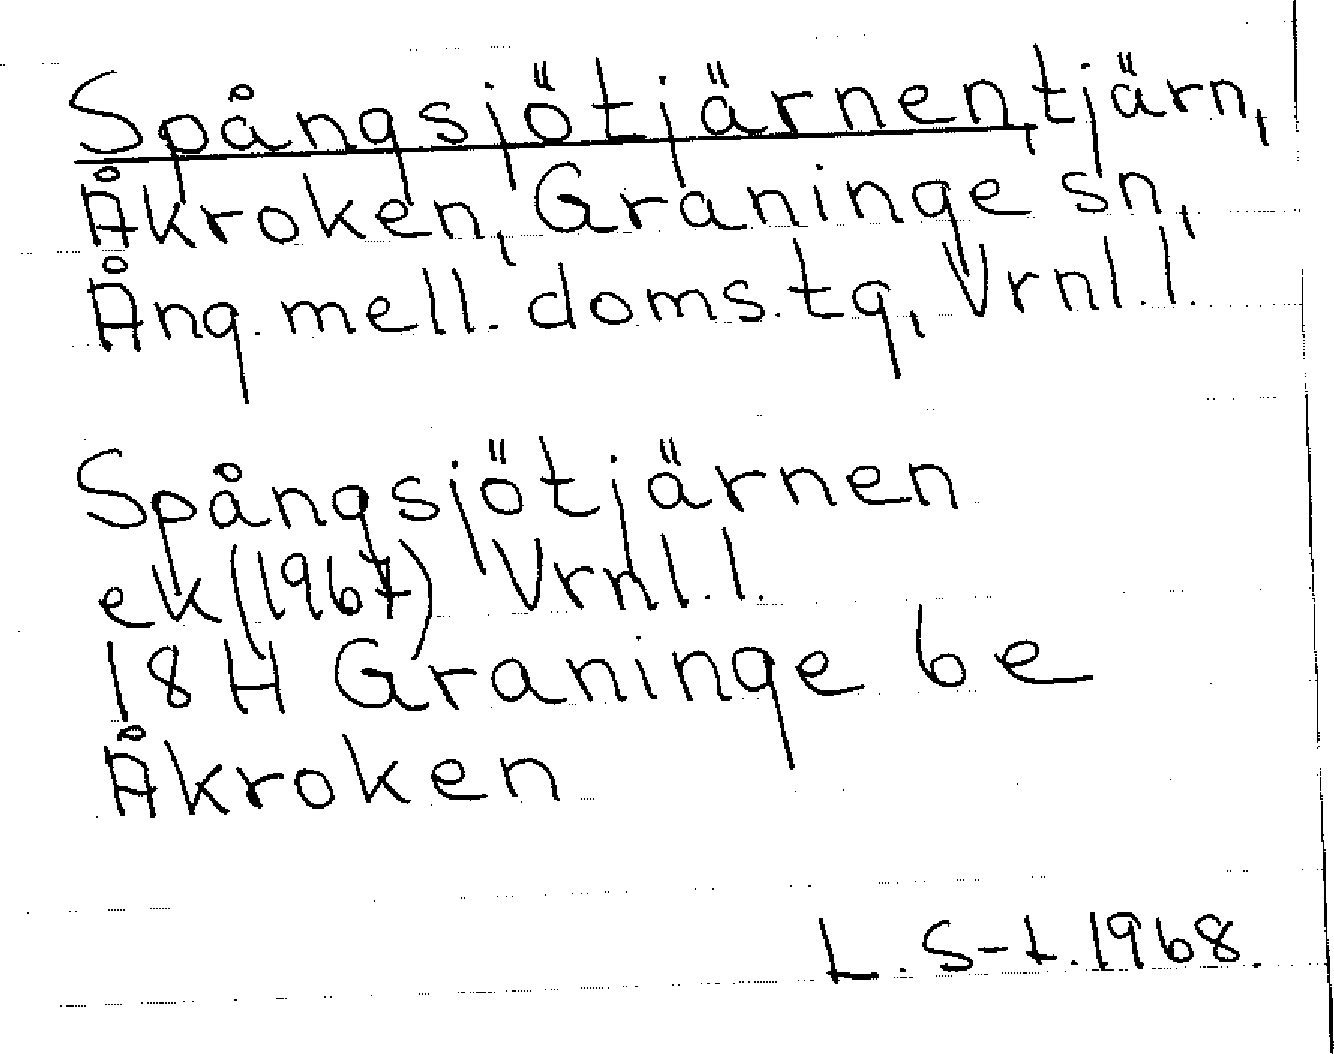 Spångsjötjärnen, tjärn,
Åkroken, Graninge sn,
Ång. mell. doms. tg, Vrnl. l.
Spångsjötjärnen
ek (1967) Vrnl. l.
18H Graninge 6e
Åkroken
L. S-t. 1968.